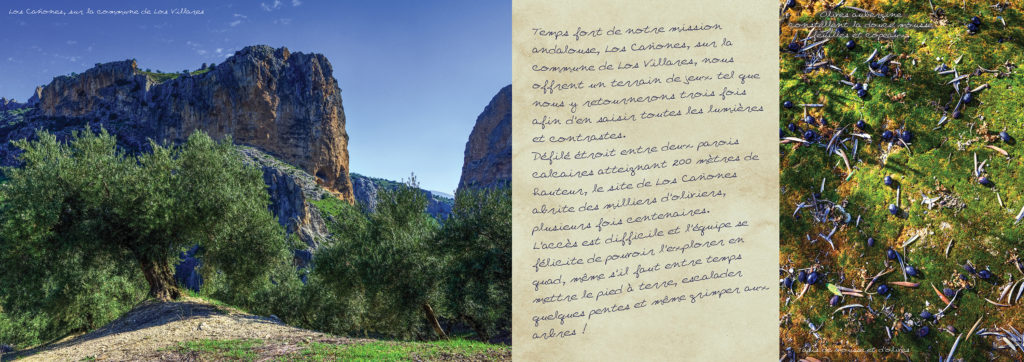 Los Cañones, sur la commune de Los Villares
Temps fort de notre mission
andalouse, Los Cañones, sur la
commune de Los Villares, nous
offrent un terrain de jeux tel que
nous y retournerons trois fois
afin d'en saisir toutes les lumières
et contrastes.
Défilé étroit entre deux parois
calcaires atteignant 200 mètres de
hauteur, le site de Los Cañones
abrite des milliers d'oliviers,
plusieurs fois centenaires.
L'accès est difficile et l'équipe se
félicite de pouvoir l'explorer en
quad, même s'il faut entre temps
mettre le pied à terre, escalader
quelques pentes et même grimper aux
arbres !
Olives aubergine
constellent la douce mousse
feuilles et copeaux